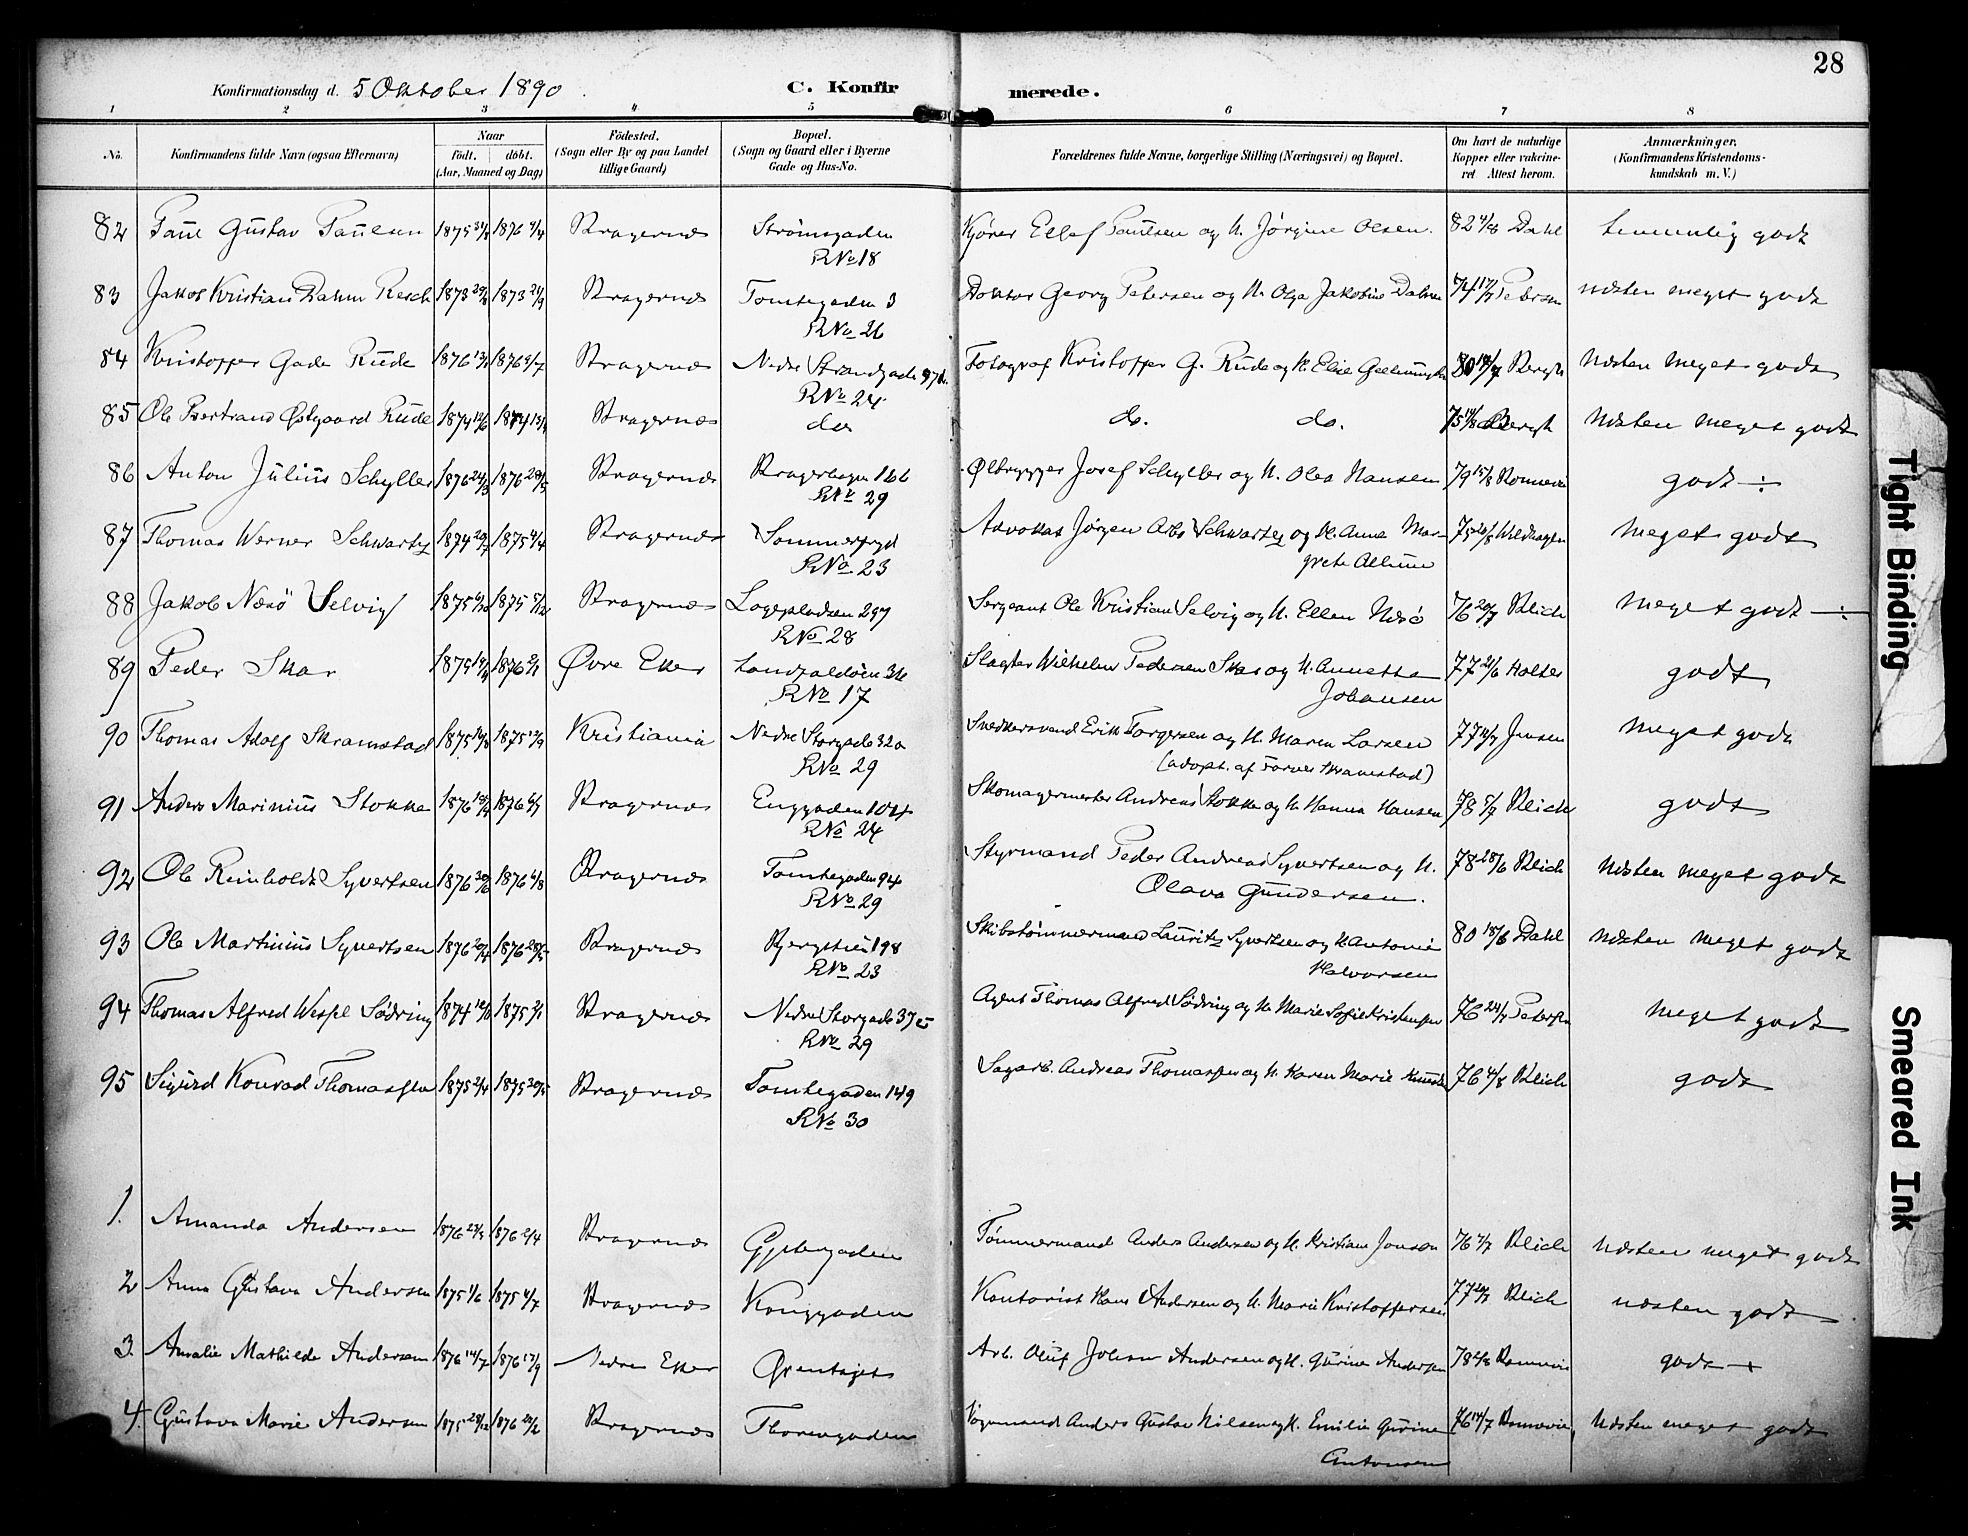 28
Konfirmationsdag d. 5 Oktober 1890. C. Konfirmerede.
1 2 3 4 5 6 7 8
No. Konfirmandens fulde Navn (ogsaa Efternavn) Naar født. døbt. (Aar, Maaned og Dag) Fødested. (Sogn eller By og paa Landet tillige Gaard) Bopæl. (Sogn og Gaard eller i Byerne Gade og Hus-No. Forældrenes fulde Navne, borgerlige Stilling (Næringsvei) og Bopæl. Om havt de naturlige Kopper eller vakcineret Attest herom. Anmærkninger. (Konfirmandens Kristendomskundskab m. V.)
82 Paul Gustav Paulsen 1875 1876 Bragernæs Strømsgaden Kjører Ellef Paulsen og H. Jørgine Olsen. 82 4/8 Dahl temmelig godt
R No 18
83 Jakob Kristian Dahm Resch 1873 1873 21/9 Bragernæs Tomtegaden 3 Doktor Georg Petersen og H. Olga Jakobine Dahm 74 17/7 Petersen næsten meget godt
R No 26
84 Kristoffer Gade Rude 1876 1876 Bragernæs Nedre Strandgade Fotograf Kristoffer G. Rude og H. Elise 80 Bergh næsten meget godt
R No 24
85 Ole Bertrand Østgaard Rude 1874 1874 Bragernæs do do. do. 75 Bergh næsten meget godt
86 Anton Julius Schyller 1876 24/3 1876 28/5 Bragernæs Bragerhagen 166 Ølbrygger Josef Schyller og H. Olea Hansen 79 15/8 godt ÷
R No 29
87 Thomas Werner Schwartz 1874 1875 4/4 Bragernæs Sommerfryd Advokat Jørgen Arbo Schwartz og H. Anna Mar- 75 Wildhagen meget godt
R No 23 grete Allum
88 Jakob Næsø Selvig 1875 1875 5/12 Bragernæs Løgepladsen 297 Sergeant Ole Kristian Selvig og H. Ellen Næsø 76 20/7 Blich meget godt ÷
R No 28
89 Peder Skar 1875 1876 Øvre Eker Landfaldøen 36 Slagter Wilhelm Pedersen Skar og H. Annette 77 21/6 Holter godt
R No 17 Johansen
90 Thomas Adolf Skramstad 1875 1875 Kristiania Nedre Storgade 32a Snedkersvend Erik Torgersen og H. Maren Larsen 77 Jensen meget godt
R No 29 (adopt. af Skramstad)
91 Anders Marinius Stokke 1876 1876 Bragernæs Enggaden 104 Skomagermester Andreas Stokke og H. Hanna Hansen 78 5/7 Blich godt
R No 24
92 Ole Reinholdt Syvertsen 1876 1876 6/8 Bragernæs Tomtegaden 94 Styrmand Peder Andreas Syvertsen og H. 78 28/6 Blich næsten meget godt
R No 29 Olava Gundersen.
93 Ole Martinius Syvertsen 1876 1876 28/5 Bragernæs Bergstien 198 Skibstømmermand Lauritz Syvertsen og H. Antonie 80 18/6 Dahl næsten meget godt
R No 23 Halvorsen
94 Thomas Alfred Wessel Sødring 1874 1875 Bragernæs Nedre Storgade 37c Agent Thomas Alfred Sødring og H. Marie Sofie Kristensen 76 24/7 Petersen meget godt
R No 29
95 Sigurd Konrad Thomassen 1875 2/4 1875 30/5 Bragernæs Tomtegaden 149 Sagarb. Andreas Thomassen og H. Karen Marie 76 4/8 Blich godt
R No 30
1. Amanda Andersen 1876 1876 2/4 Bragernæs Gjetergaden Tømmermand Anders Andersen og H. Kristiane Jonson 76 Blich næsten meget godt
2 Anna Gustava Andersen 1875 1/6 1875 4/7 Bragernæs Konggaden Kontorist Hans Andersen og H. Marie Kristoffersen 77 Blich næsten godt
3. Amalie Mathilde Andersen 1876 14/7 1876 17/9 Nedre Eker Arb. Oluf Johan Andersen og H. Gurine Andersen 78 godt +
4. Gustava Marie Andersen 1875 28/12 1876 20/2 Bragernæs Thorengaden Vognmand Anders Gustav Nilsen og H. Emilie Gurine 76 14/7 næsten meget godt
Antonsen
Tight Binding
Smeared Ink